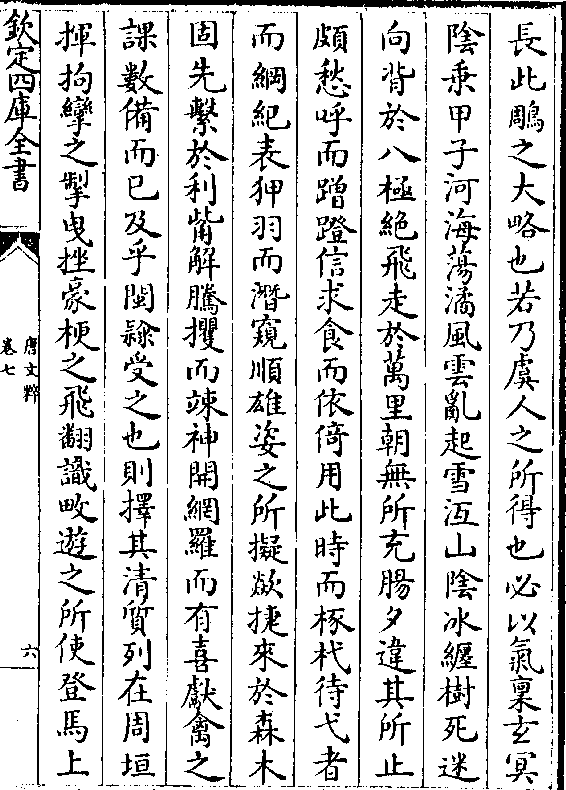 長此鵰之大略也若乃虞人之所得也必以氣稟玄冥
陰乗甲子河海蕩潏風雲亂起雪沍山陰冰纒樹死迷
向背於八極絶飛走於萬里朝無所充腸夕違其所止
頗愁呼而蹭蹬信求食而依倚用此時而椓杙待弋者
而綱紀表狎羽而潛窺順雄姿之所擬欻捷來於森木
固先繫於利觜解騰攫而竦神開網羅而有喜獻禽之
課數備而已及乎閩隸受之也則擇其清質列在周垣
揮拘攣之掣曳挫豪梗之飛翻識畋遊之所使登馬上
欽定四庫全書
唐文粹
卷七
六